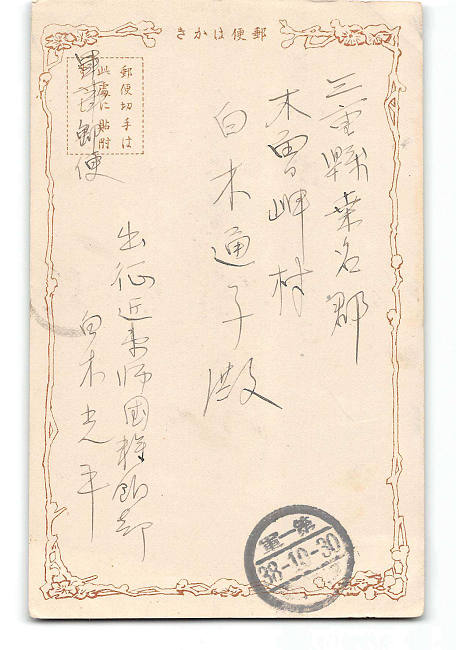 郵便はかき
郵便切手は
此處に貼附
軍事郵便
三重縣桑名郡
木曽岬村
白木通子殿
出征近衛師團
白木光平
第一軍
38-10-30